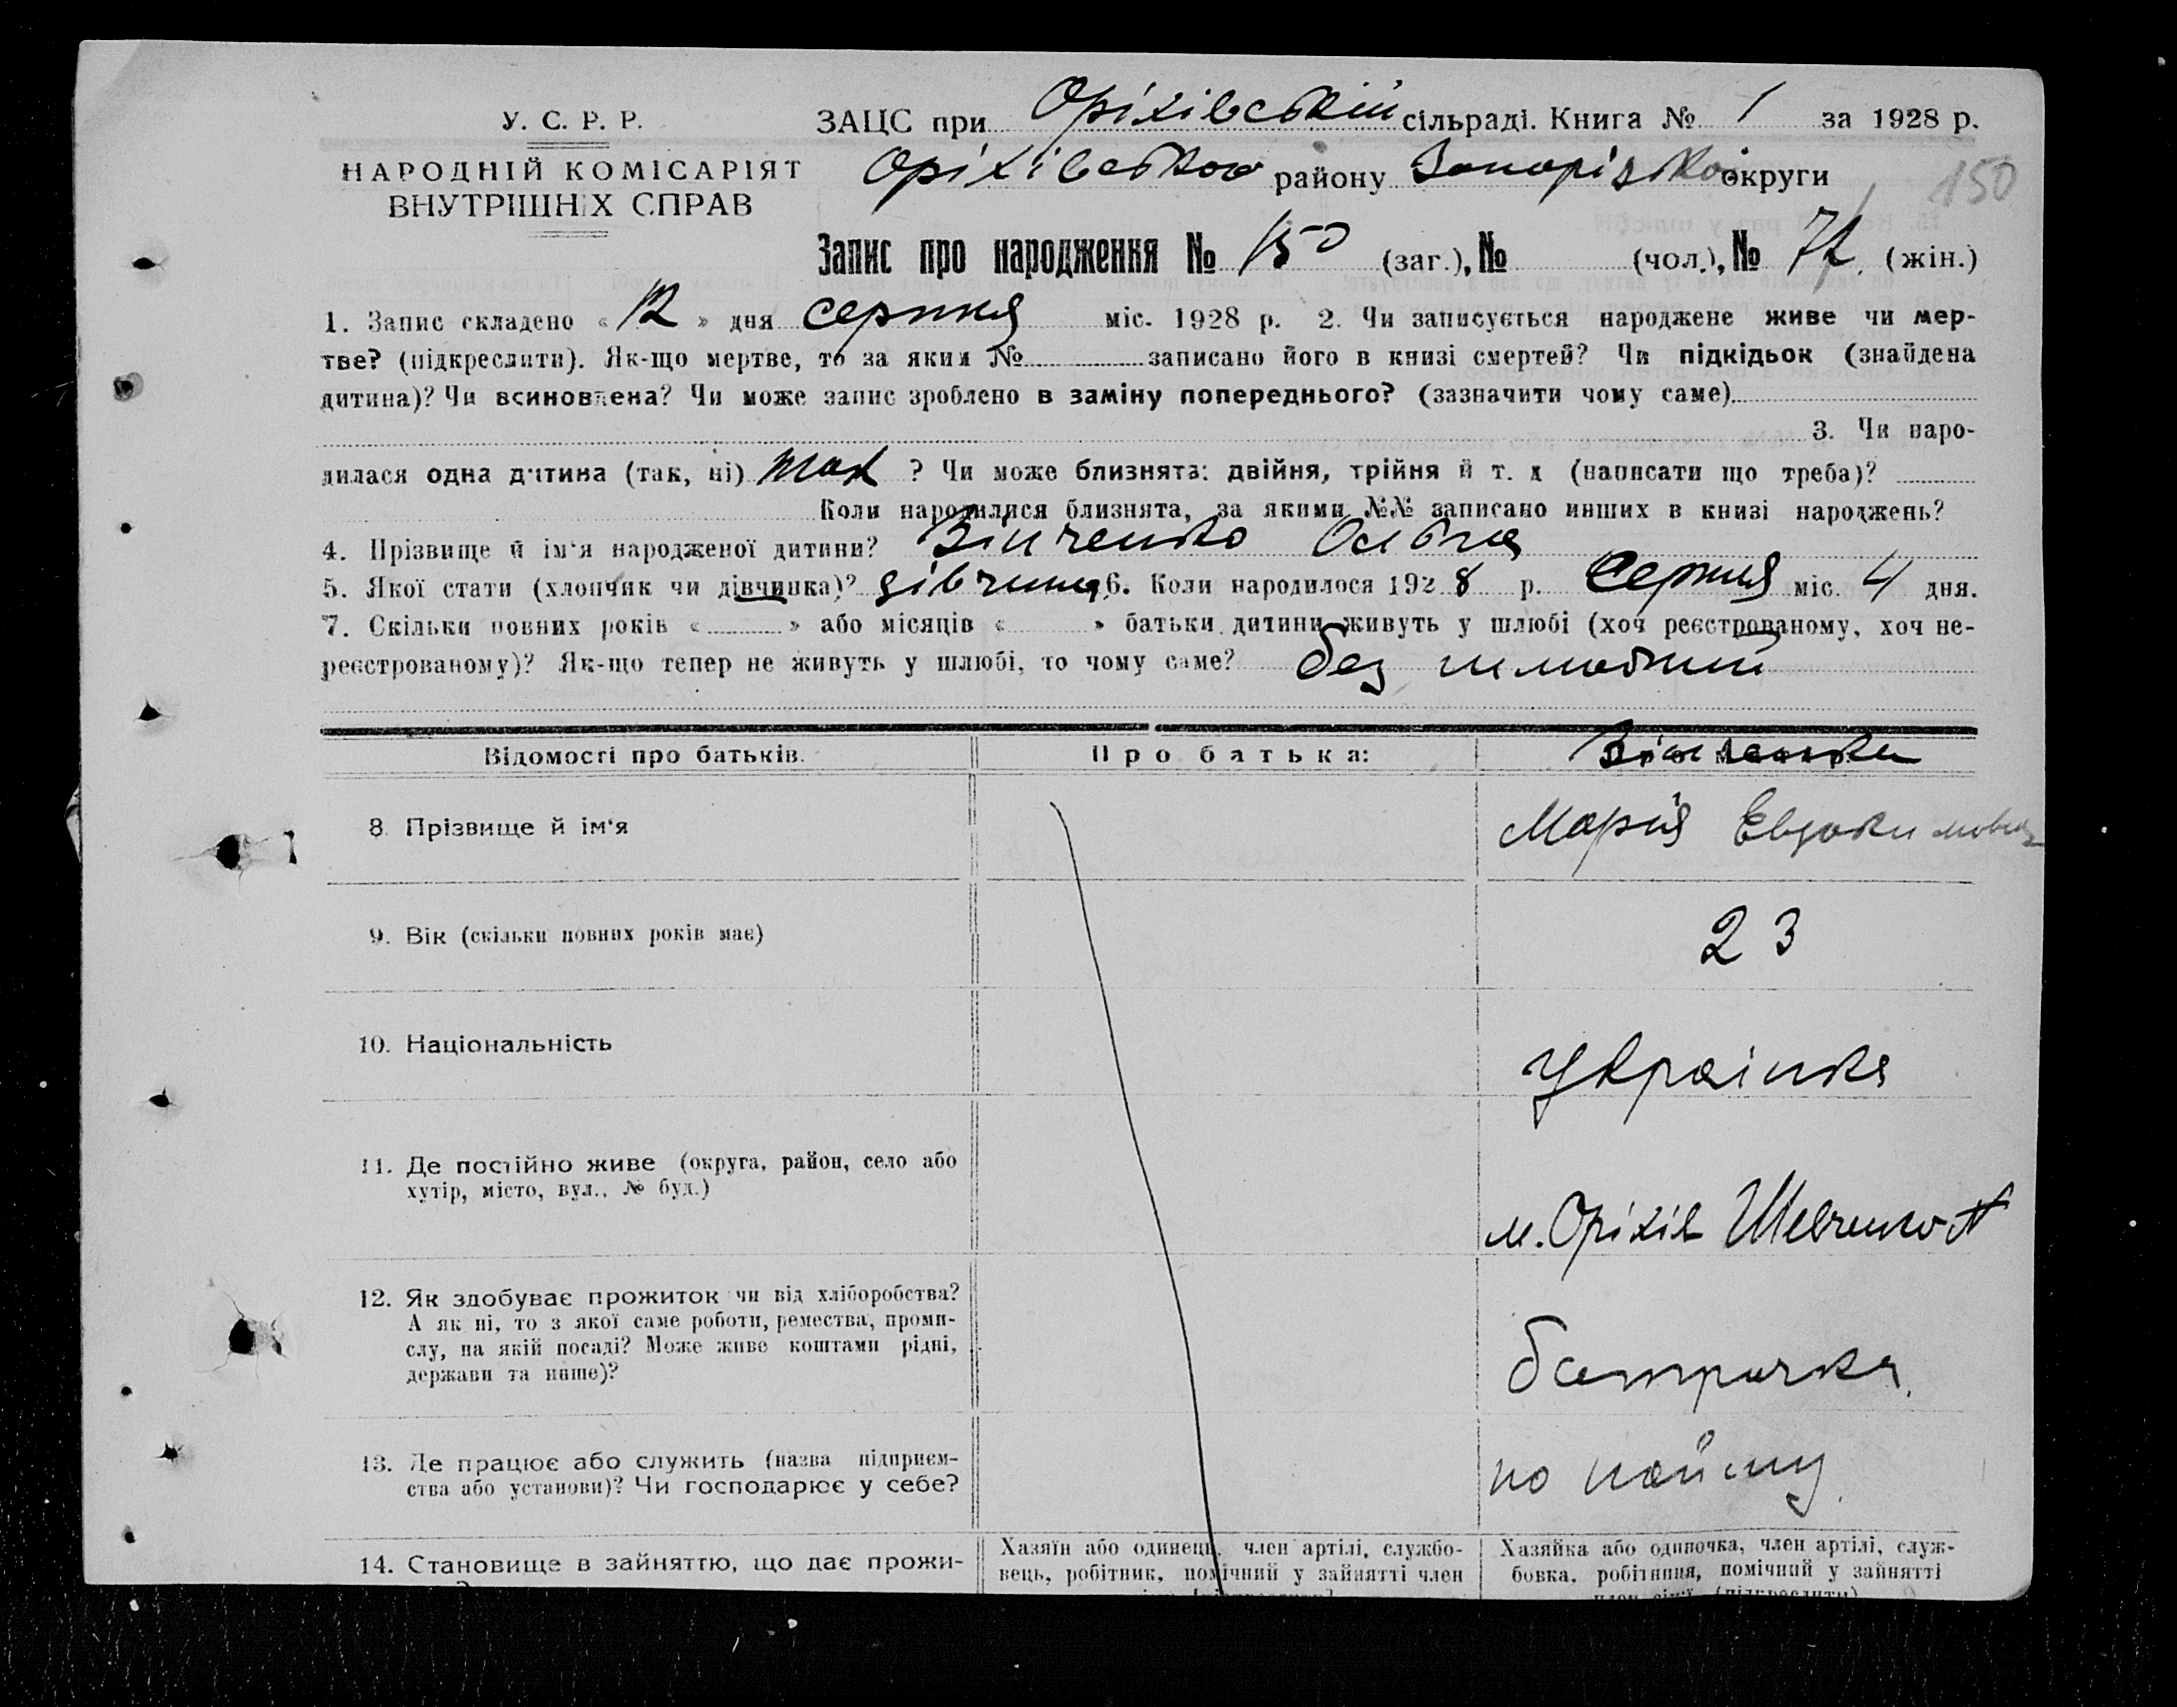 У. С. Р. Р.
НАРОДНІЙ КОМІСАРІЯТ
ВНУТРІШНІХ СПРАВ
ЗАЦС при Оріхівській сільраді. Книга № 1 за 1928 р.
Оріхівського району Запорізької округи
150
Запис про народження № 150 (заг.), № (чол.), № 72 (жін.)
1. Запис складено « 12 » дня серпня міс. 1928 р. 2. Чи записується народжене живе чи мер-
тве? (підкреслити). Як-що мертве, то за яким № записано його в книзі смертей? Чи підкідьок (знайдена
дитина)? Чи всиновлена? Чи може запис зроблено в заміну попереднього? (зазначити чому саме)
3. Чи наро-
дилася одна дитина (так, ні) так ? Чи може близнята: двійня, трійня й т. д (написати що треба)?
Коли народилися близнята, за якими №№ записано инших в книзі народжень?
4. Прізвище й ім'я народженої дитини? Зінченко Ольга
5. Якої стати (хлопчик чи дівчинка)? дівчина 6. Коли народилося 1928 р. Серпня міс. 4 дня.
7. Скільки повних років « » або місяців « » батьки дитини живуть у шлюбі (хоч реєстрованому, хоч не-
реєстрованому)? Як-що тепер не живуть у шлюбі, то чому саме? без шлюбний
Відомості про батьків.
Про батька:
Зінченко
8. Прізвище й ім'я
Марія Евдокимовна
9. Вік (скільки повних років має)
23
10. Національність
Українка
11. Де постійно живе (округа, район, село або
хутір, місто, вул., № буд.)
м. Оріхів Шевченко
12. Як здобуває прожиток чи від хліборобства?
А як ні, то з якої саме роботи, ремества, проми-
слу, на якій посаді? Може живе коштами рідні,
держави та инше)?
батрачка
13. Де працює або служить (назва підприєм-
ства або установи)? Чи господарює у себе?
по найму
14. Становище в зайняттю, що дає прожи-
Хазяїн або одинець, член артілі, службо-
вець, робітник, помічний у зайнятті член
Хазяйка або одиночка, член артілі, служ-
бовка, робітниця, помічний у зайнятті
член сім'ї (підкреслити)